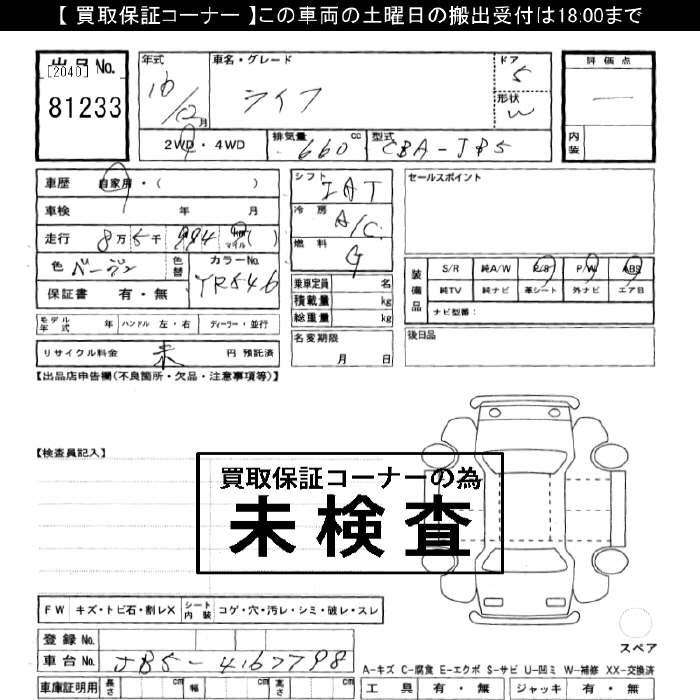 【 買取保証コーナー 】この車両の土曜日の搬出受付は18:00まで
出品 No.
[2040]
81233
年式
16/12月
車名・グレード
ライフ
ドア
5
形状
W
評価点
―
内装
2WD・4WD
排気量 660 cc
型式 CBA-JB5
車歴 自家用・( )
車検 年 月
走行 8万5千984 km マイル ( )
色 ベージュ
色替
カラーNo.
YR546
保証書 有・無
シフト
IAT
冷房
A/C
燃料
G
乗車定員 名
積載量 kg
総重量 kg
セールスポイント
装備品
S/R 純A/W P/S P/W ABS
純TV 純ナビ 革シート 外ナビ エア日
ナビ型番:
モデル年式 年 ハンドル 左・右 ディーラー・並行
名変期限
月 日
後日品
リサイクル料金 未 円 預託済
【出品店申告欄(不良箇所・欠品・注意事項等)】
【検査員記入】
買取保証コーナーの為
未検査
FW キズ・トビ石・割レX シート内装 コゲ・穴・汚レ・シミ・破レ・スレ
スペア
登録 No.
車台 No. JB5-4167798
A-キズ C-腐食 E-エクボ S-サビ U-凹ミ W-補修 XX-交換済
車庫証明用 長さ cm 幅 cm 高さ cm
工具 有・無 ジャッキ 有・無